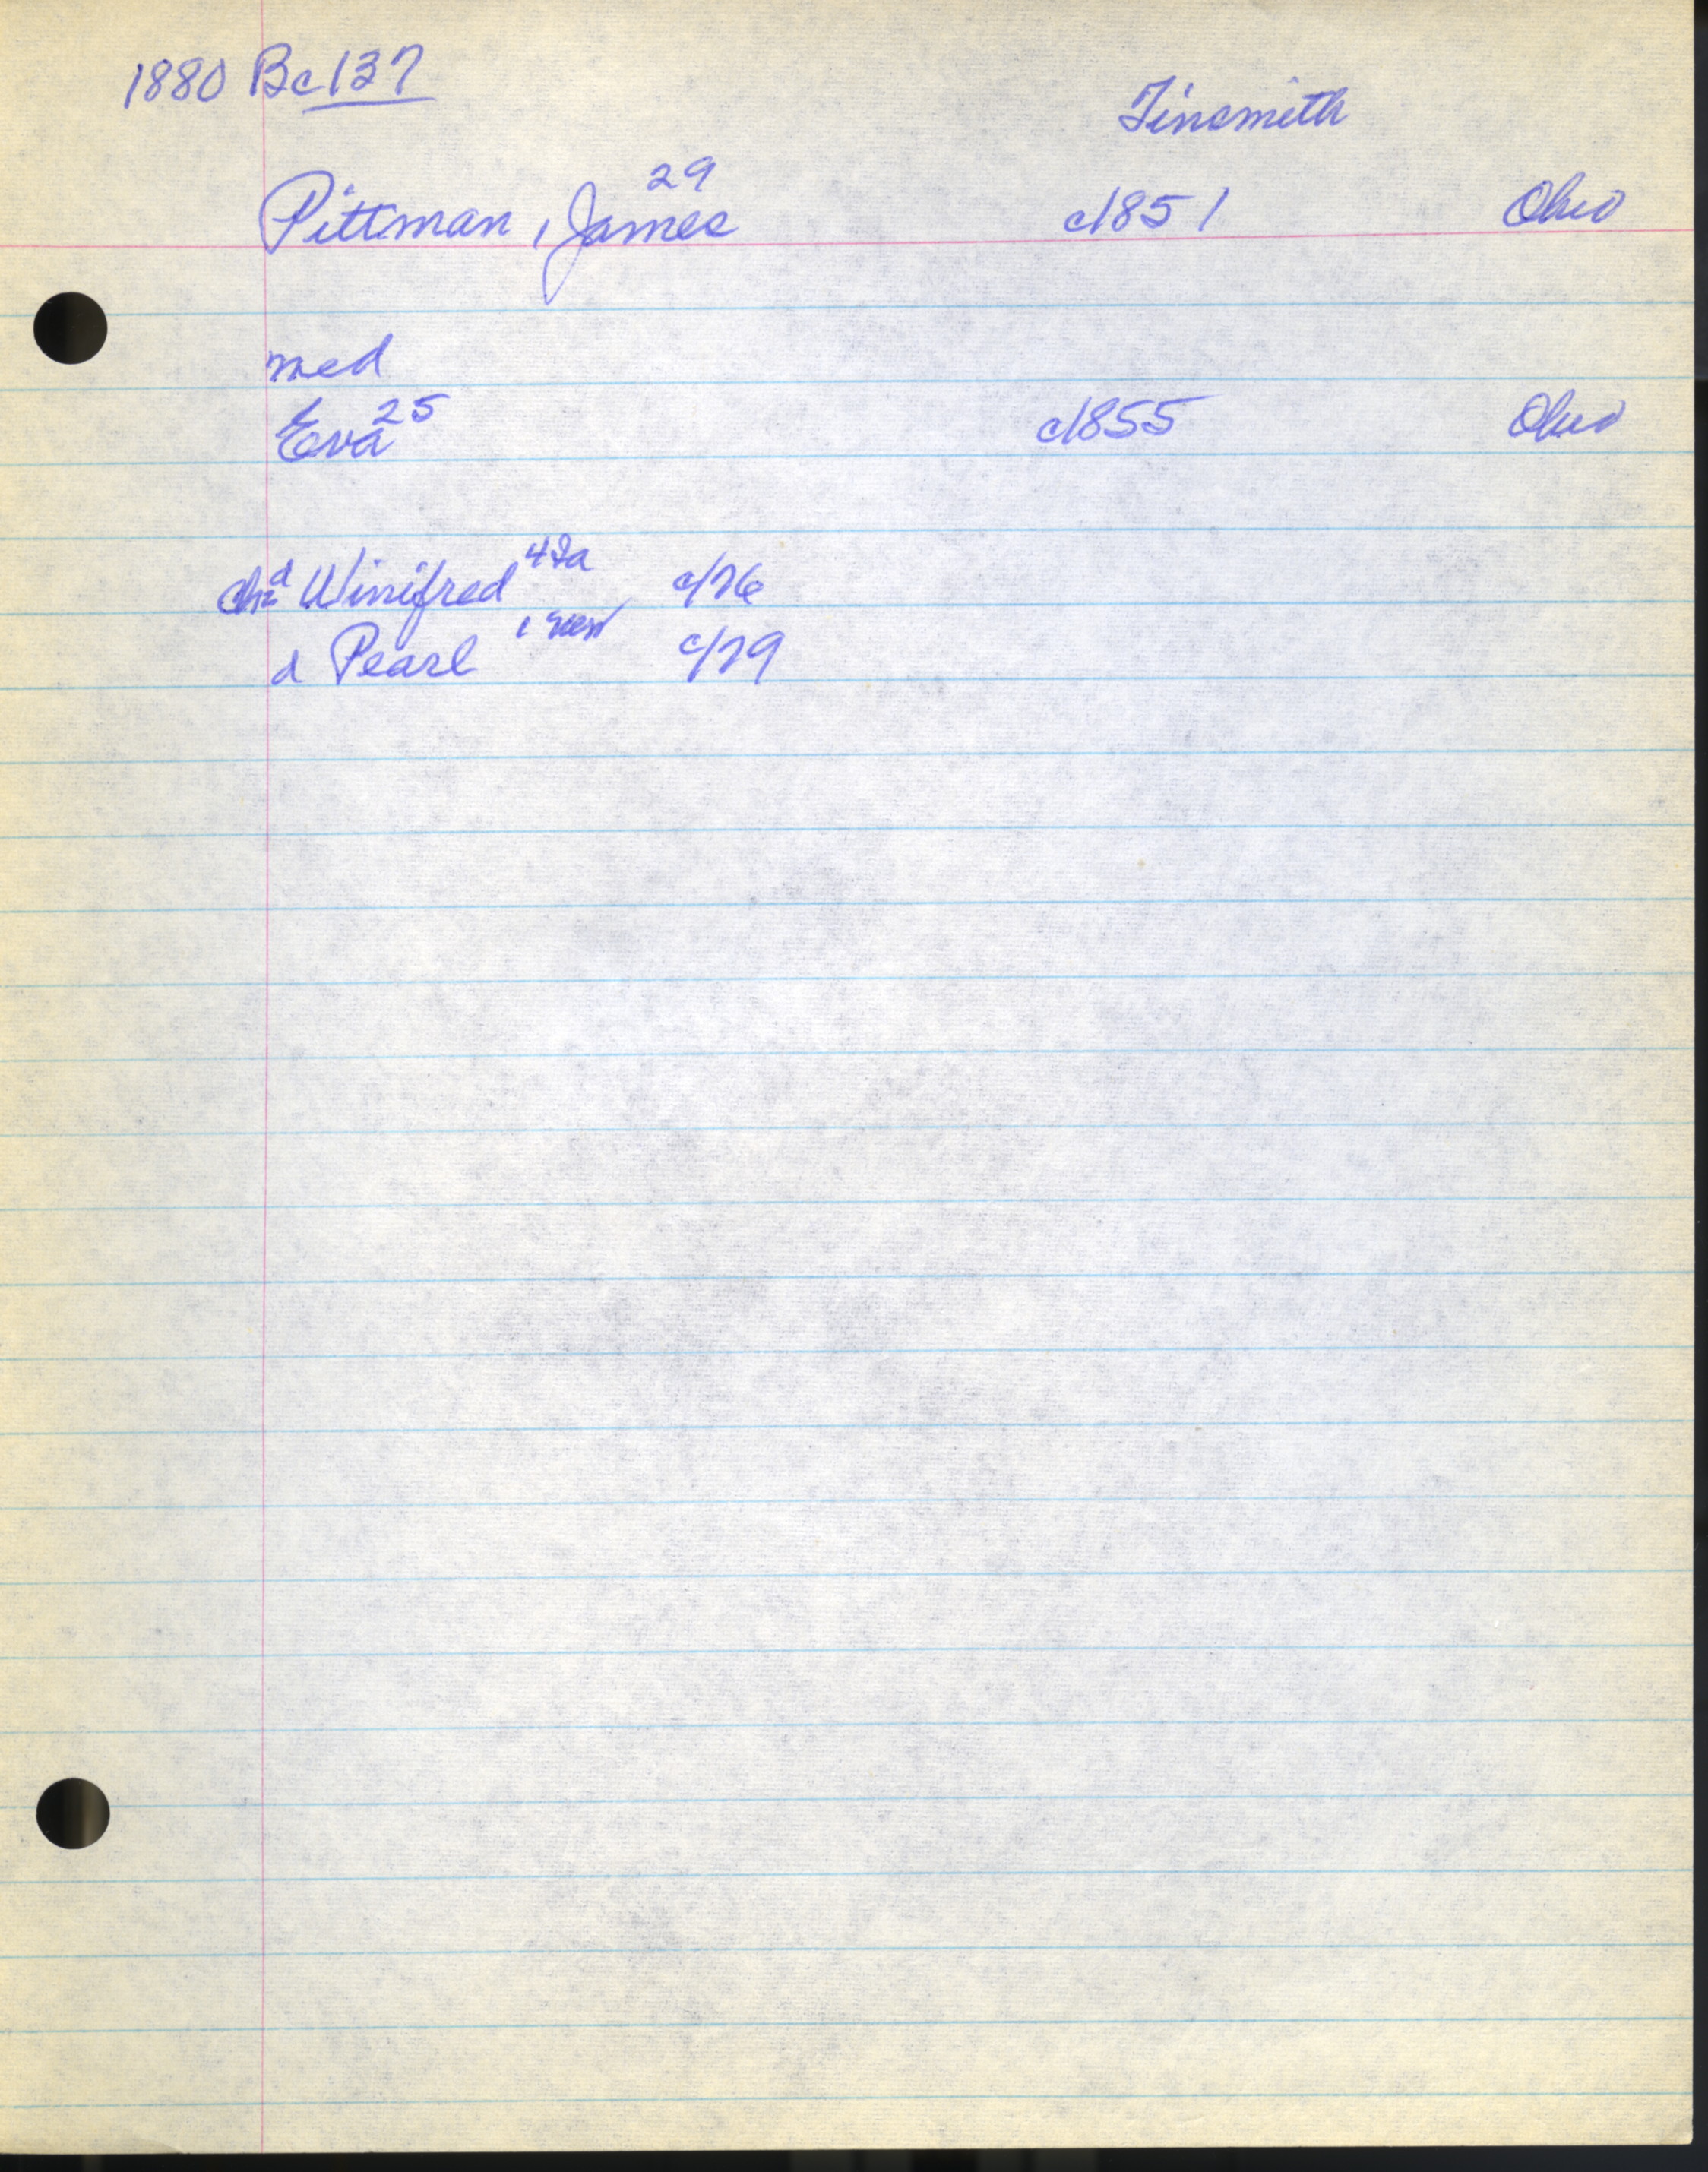 1880 Bc 137
Tinsmith
Pittman, James 29 c1851 Ohio
med
Eva 25 c1855 Ohio
ch: d Winifred 4 Ia c/76
d Pearl 1 c/79